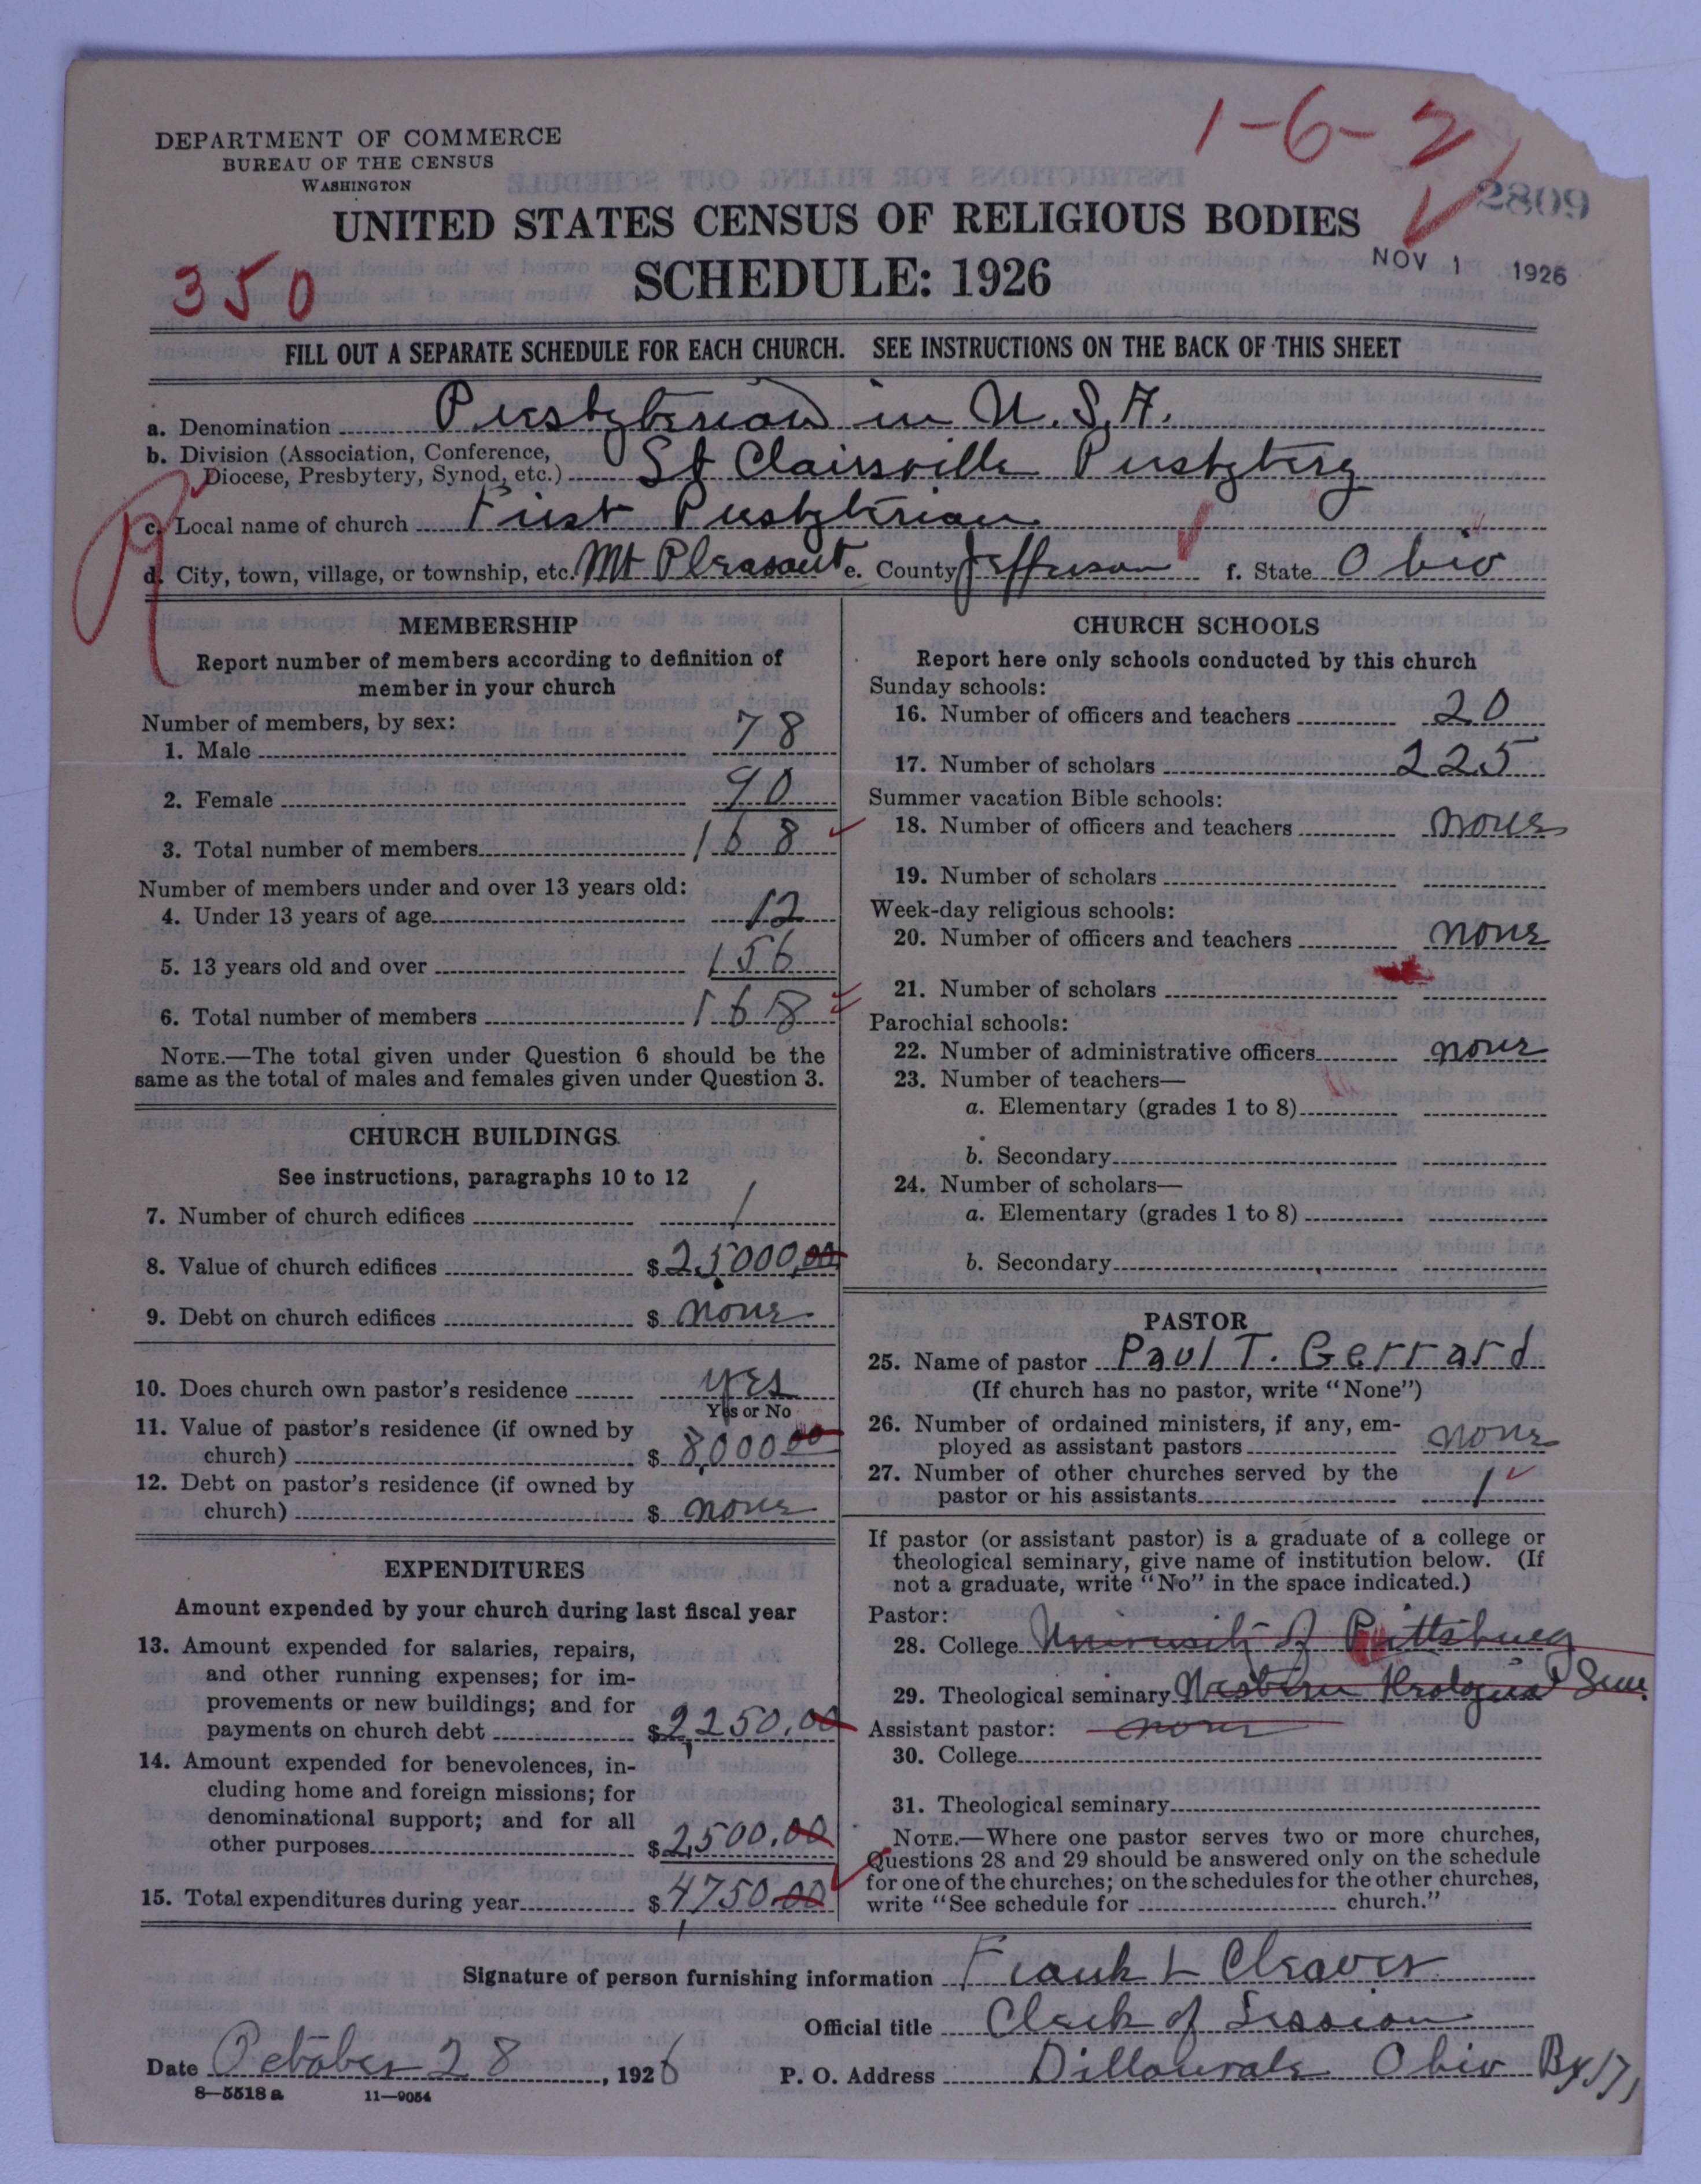 1-6-2
DEPARTMENT OF COMMERCE
BUREAU OF THE CENSUS
WASHINGTON
2809
UNITED STATES CENSUS OF RELIGIOUS BODIES
SCHEDULE: 1926
NOV 1 1926
350
FILL OUT A SEPARATE SCHEDULE FOR EACH CHURCH. SEE INSTRUCTIONS ON THE BACK OF THIS SHEET
a. Denomination Presbyterian in U.S.A.
b. Division (Association, Conference,
Diocese, Presbytery, Synod, etc.) St Clairsville Presbytery
c. Local name of church First Presbyterian
d. City, town, village, or township, etc. Mt Pleasant e. County Jefferson f. State Ohio
MEMBERSHIP
Report number of members according to definition of
member in your church
Number of members, by sex:
1. Male 78
2. Female 90
3. Total number of members 168
Number of members under and over 13 years old:
4. Under 13 years of age 12
5. 13 years old and over 156
6. Total number of members 168
NOTE.—The total given under Question 6 should be the
same as the total of males and females given under Question 3.
CHURCH BUILDINGS
See instructions, paragraphs 10 to 12
7. Number of church edifices 1
8. Value of church edifices $ 25000.00
9. Debt on church edifices $ none
10. Does church own pastor's residence yes
Yes or No
11. Value of pastor's residence (if owned by
church) $ 8,000.00
12. Debt on pastor's residence (if owned by
church) $ none
EXPENDITURES
Amount expended by your church during last fiscal year
13. Amount expended for salaries, repairs,
and other running expenses; for im-
provements or new buildings; and for
payments on church debt $ 2,250.00
14. Amount expended for benevolences, in-
cluding home and foreign missions; for
denominational support; and for all
other purposes $ 2,500.00
15. Total expenditures during year $ 4,750.00
CHURCH SCHOOLS
Report here only schools conducted by this church
Sunday schools:
16. Number of officers and teachers 20
17. Number of scholars 225
Summer vacation Bible schools:
18. Number of officers and teachers none
19. Number of scholars
Week-day religious schools:
20. Number of officers and teachers none
21. Number of scholars
Parochial schools:
22. Number of administrative officers none
23. Number of teachers—
a. Elementary (grades 1 to 8)
b. Secondary
24. Number of scholars—
a. Elementary (grades 1 to 8)
b. Secondary
PASTOR
25. Name of pastor Paul T. Gerrard
(If church has no pastor, write "None")
26. Number of ordained ministers, if any, em-
ployed as assistant pastors none
27. Number of other churches served by the
pastor or his assistants 1
If pastor (or assistant pastor) is a graduate of a college or
theological seminary, give name of institution below. (If
not a graduate, write "No" in the space indicated.)
Pastor:
28. College University of Pittsburg
29. Theological seminary Western Sem.
Assistant pastor: none
30. College
31. Theological seminary
NOTE.—Where one pastor serves two or more churches,
Questions 28 and 29 should be answered only on the schedule
for one of the churches; on the schedules for the other churches,
write "See schedule for church."
Signature of person furnishing information Frank L Cleaver
Official title Clerk of Session
Date October 28, 1926 P. O. Address Dillonvale Ohio
8—5518 a 11—9054